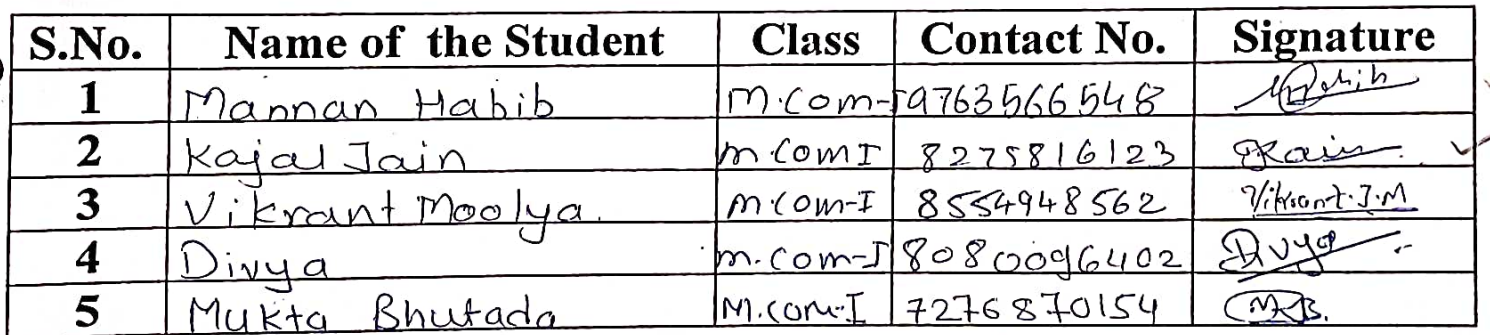 S.No. Name of the Student Class Contact No. Signature
1 Mannan Habib M.Com-I 9763566548
2 Kajal Jain M.Com I 8275816123 KJain
3 Vikrant Moolya. M.Com-I 8554948562 Vikrant.J.M
4 Divya M.Com-I 8080096402 Divya
5 Mukta Bhutada M.Com-I 7276870154 M.B.